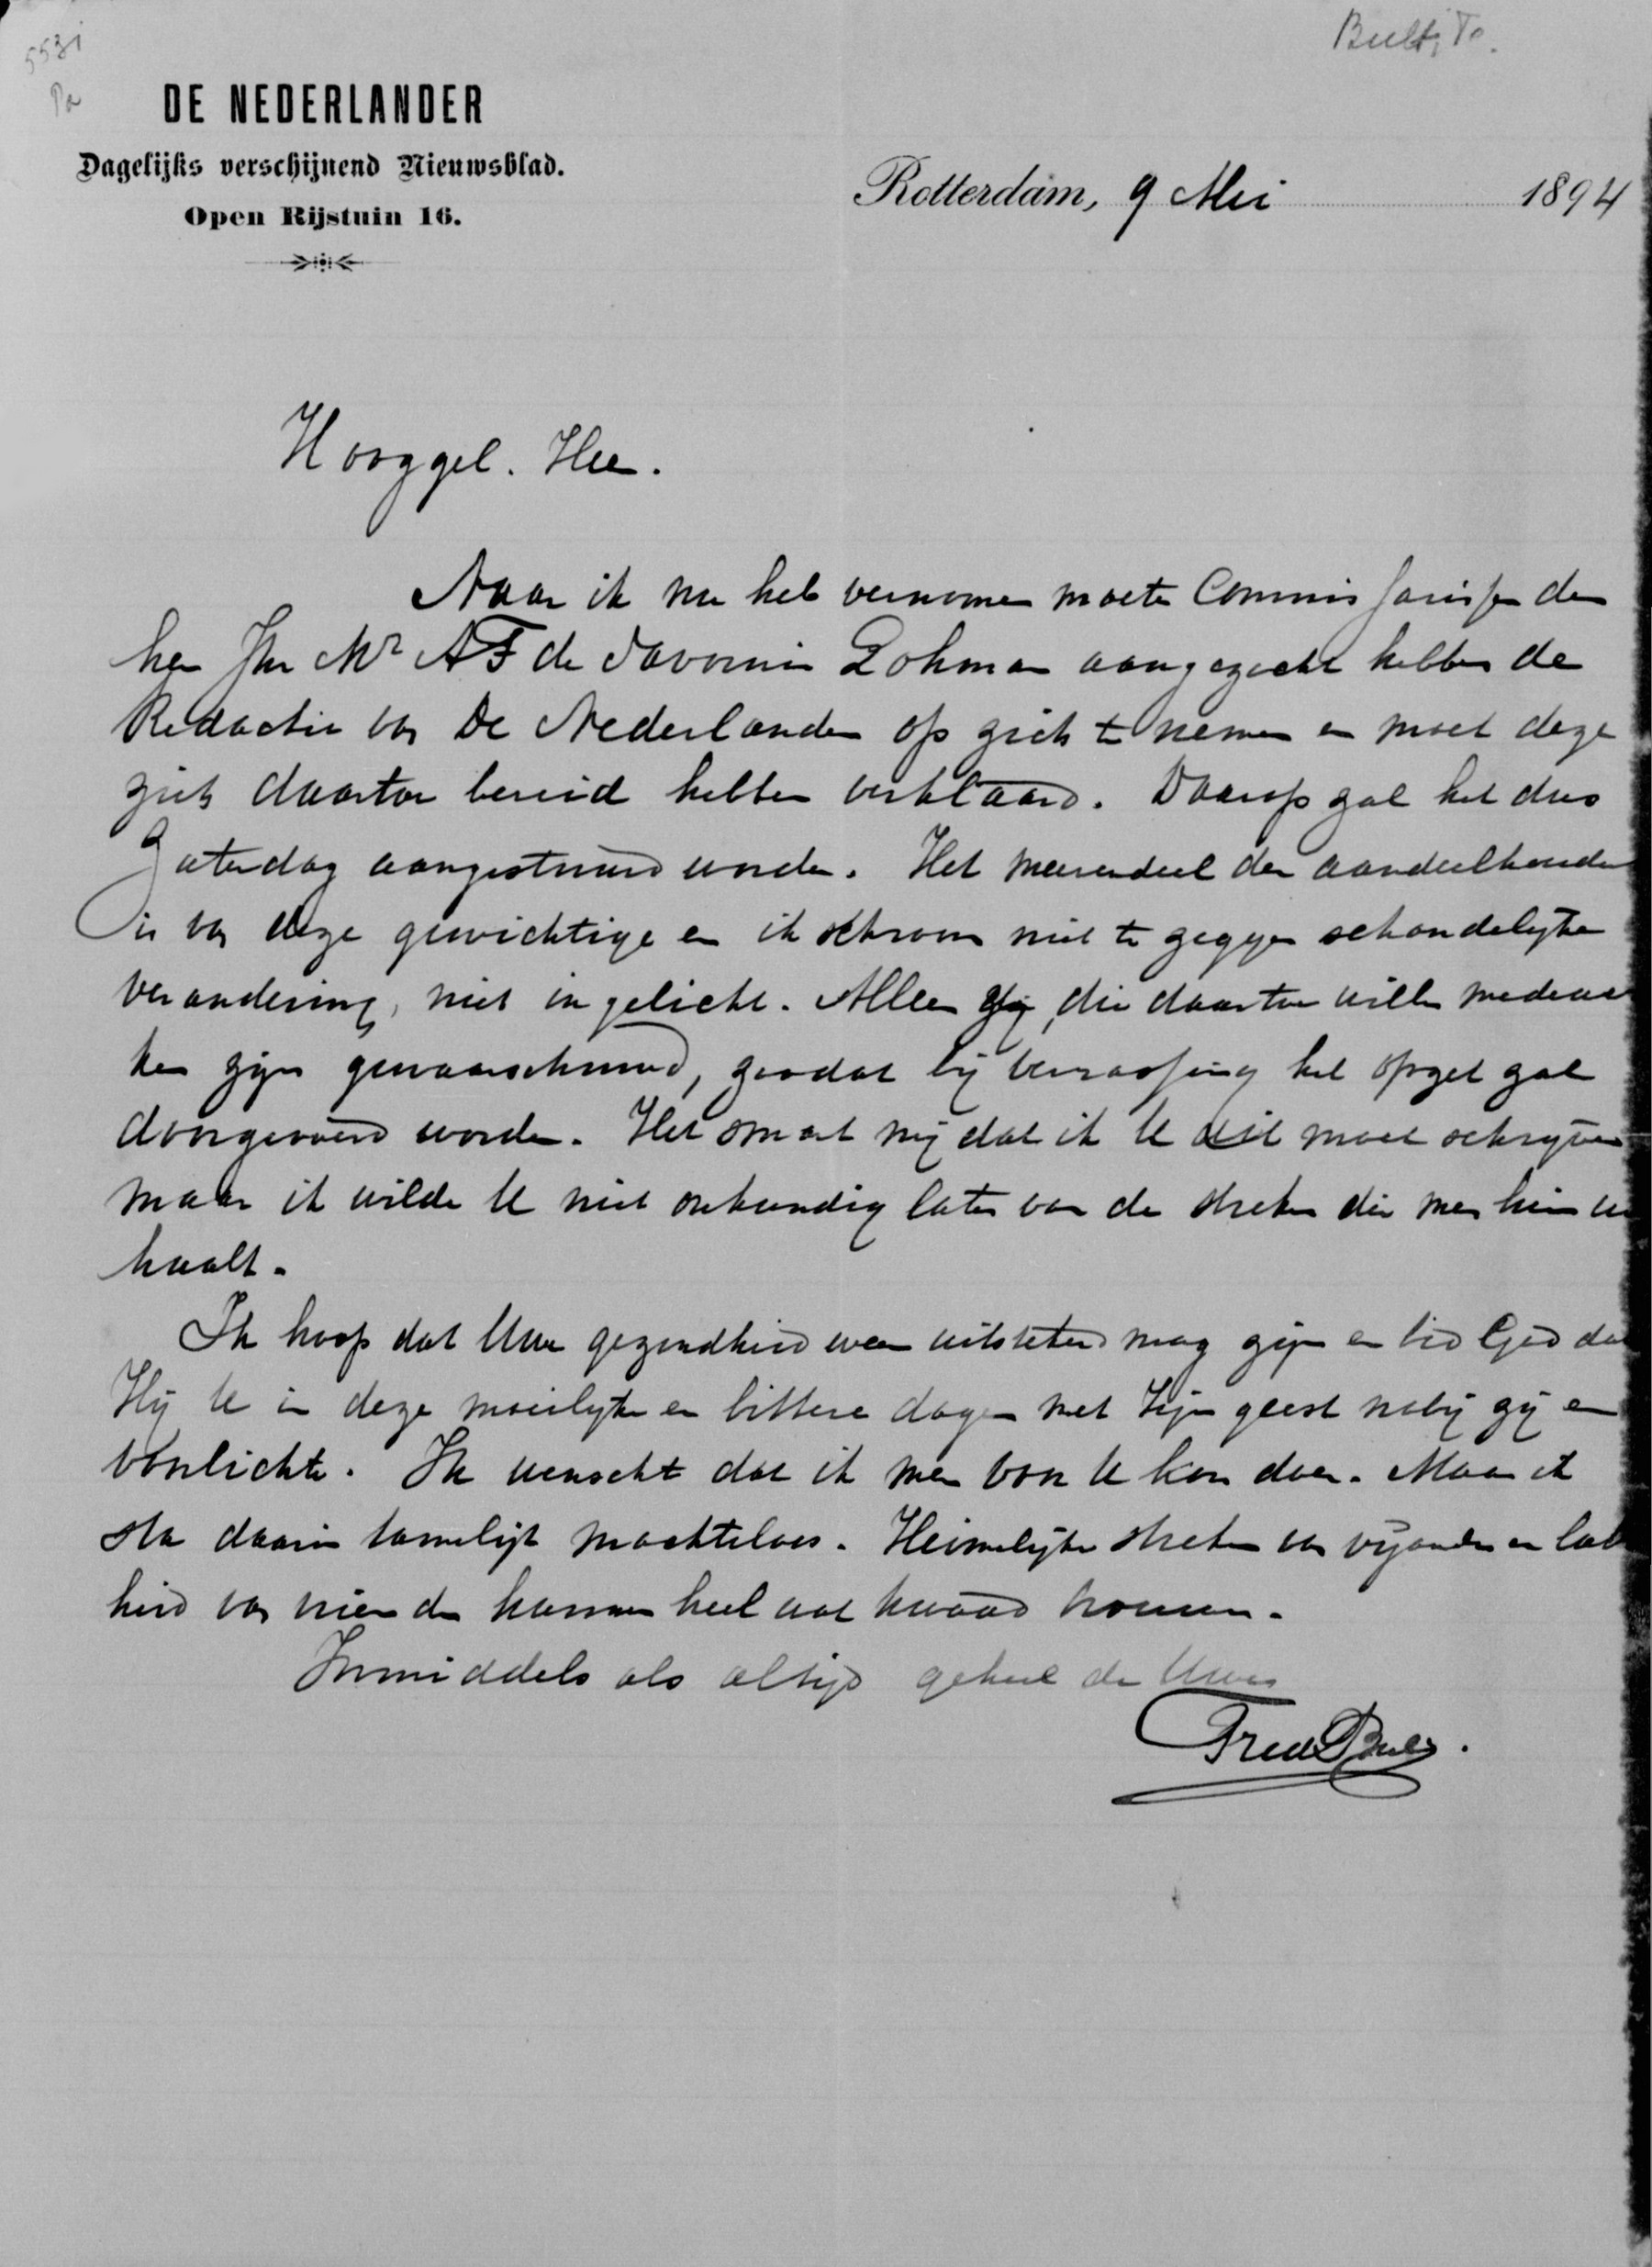 5531
Pa
Bult, To.
DE NEDERLANDER
Dagelijks verschijnend Nieuwsblad.
Open Rijstuin 16.
Rotterdam, 9 Mei 1894
Hooggel. Heer.
Naar ik nu heb vernomen moeten Commissarissen den
heer Jhr Mr AF de Savornin Lohman aangezocht hebben de
Redactie van De Nederlander op zich te nemen en moet deze
zich daartoe bereid hebben verklaard. Daarop zal het dus
Zaterdag aangestuurd worden. Het meerendeel der aandeelhouders
is van deze gewichtige en ik schroom niet te zeggen schandelijke
verandering, niet ingelicht. Alleen zij, die daartoe willen medewer
ken zijn gewaarschuwd, zoodat bij verrassing het opzet zal
doorgevoerd worden. Het smart mij dat ik U dit moet schrijven
maar ik wilde U niet onkundig laten van de streken die men hier uit
haalt.
Ik hoop dat Uwe gezondheid weer uitstekend mag zijn en bid God dat
Hij U in deze moeilijke en bittere dagen met Zijn geest nabij zij en
voorlichte. Ik wenscht dat ik meer voor U kon doen. Maar ik
sta daarin tamelijk machteloos. Heimelijke streken van vijanden en laf
heid van vrienden kunnen heel wat kwaad brouwen.
Inmiddels als altijd geheel de Uwe
Fred Bult.